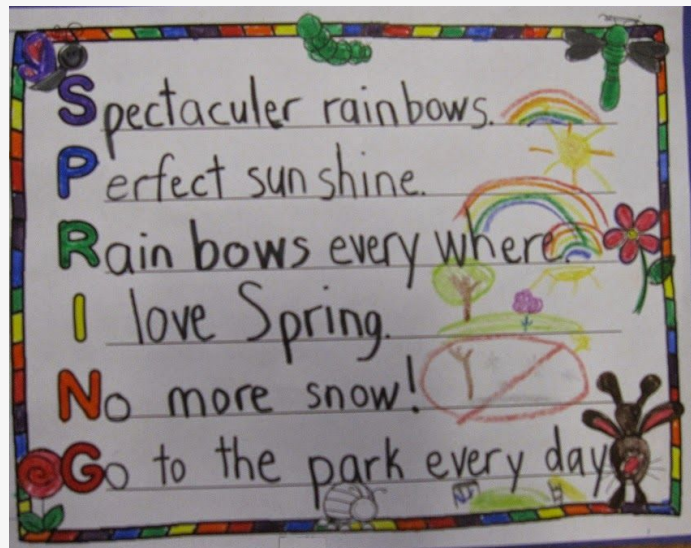 Spectaculer rainbows.
Perfect sun shine.
Rain bows every where
I love Spring.
No more snow!
Go to the park every day